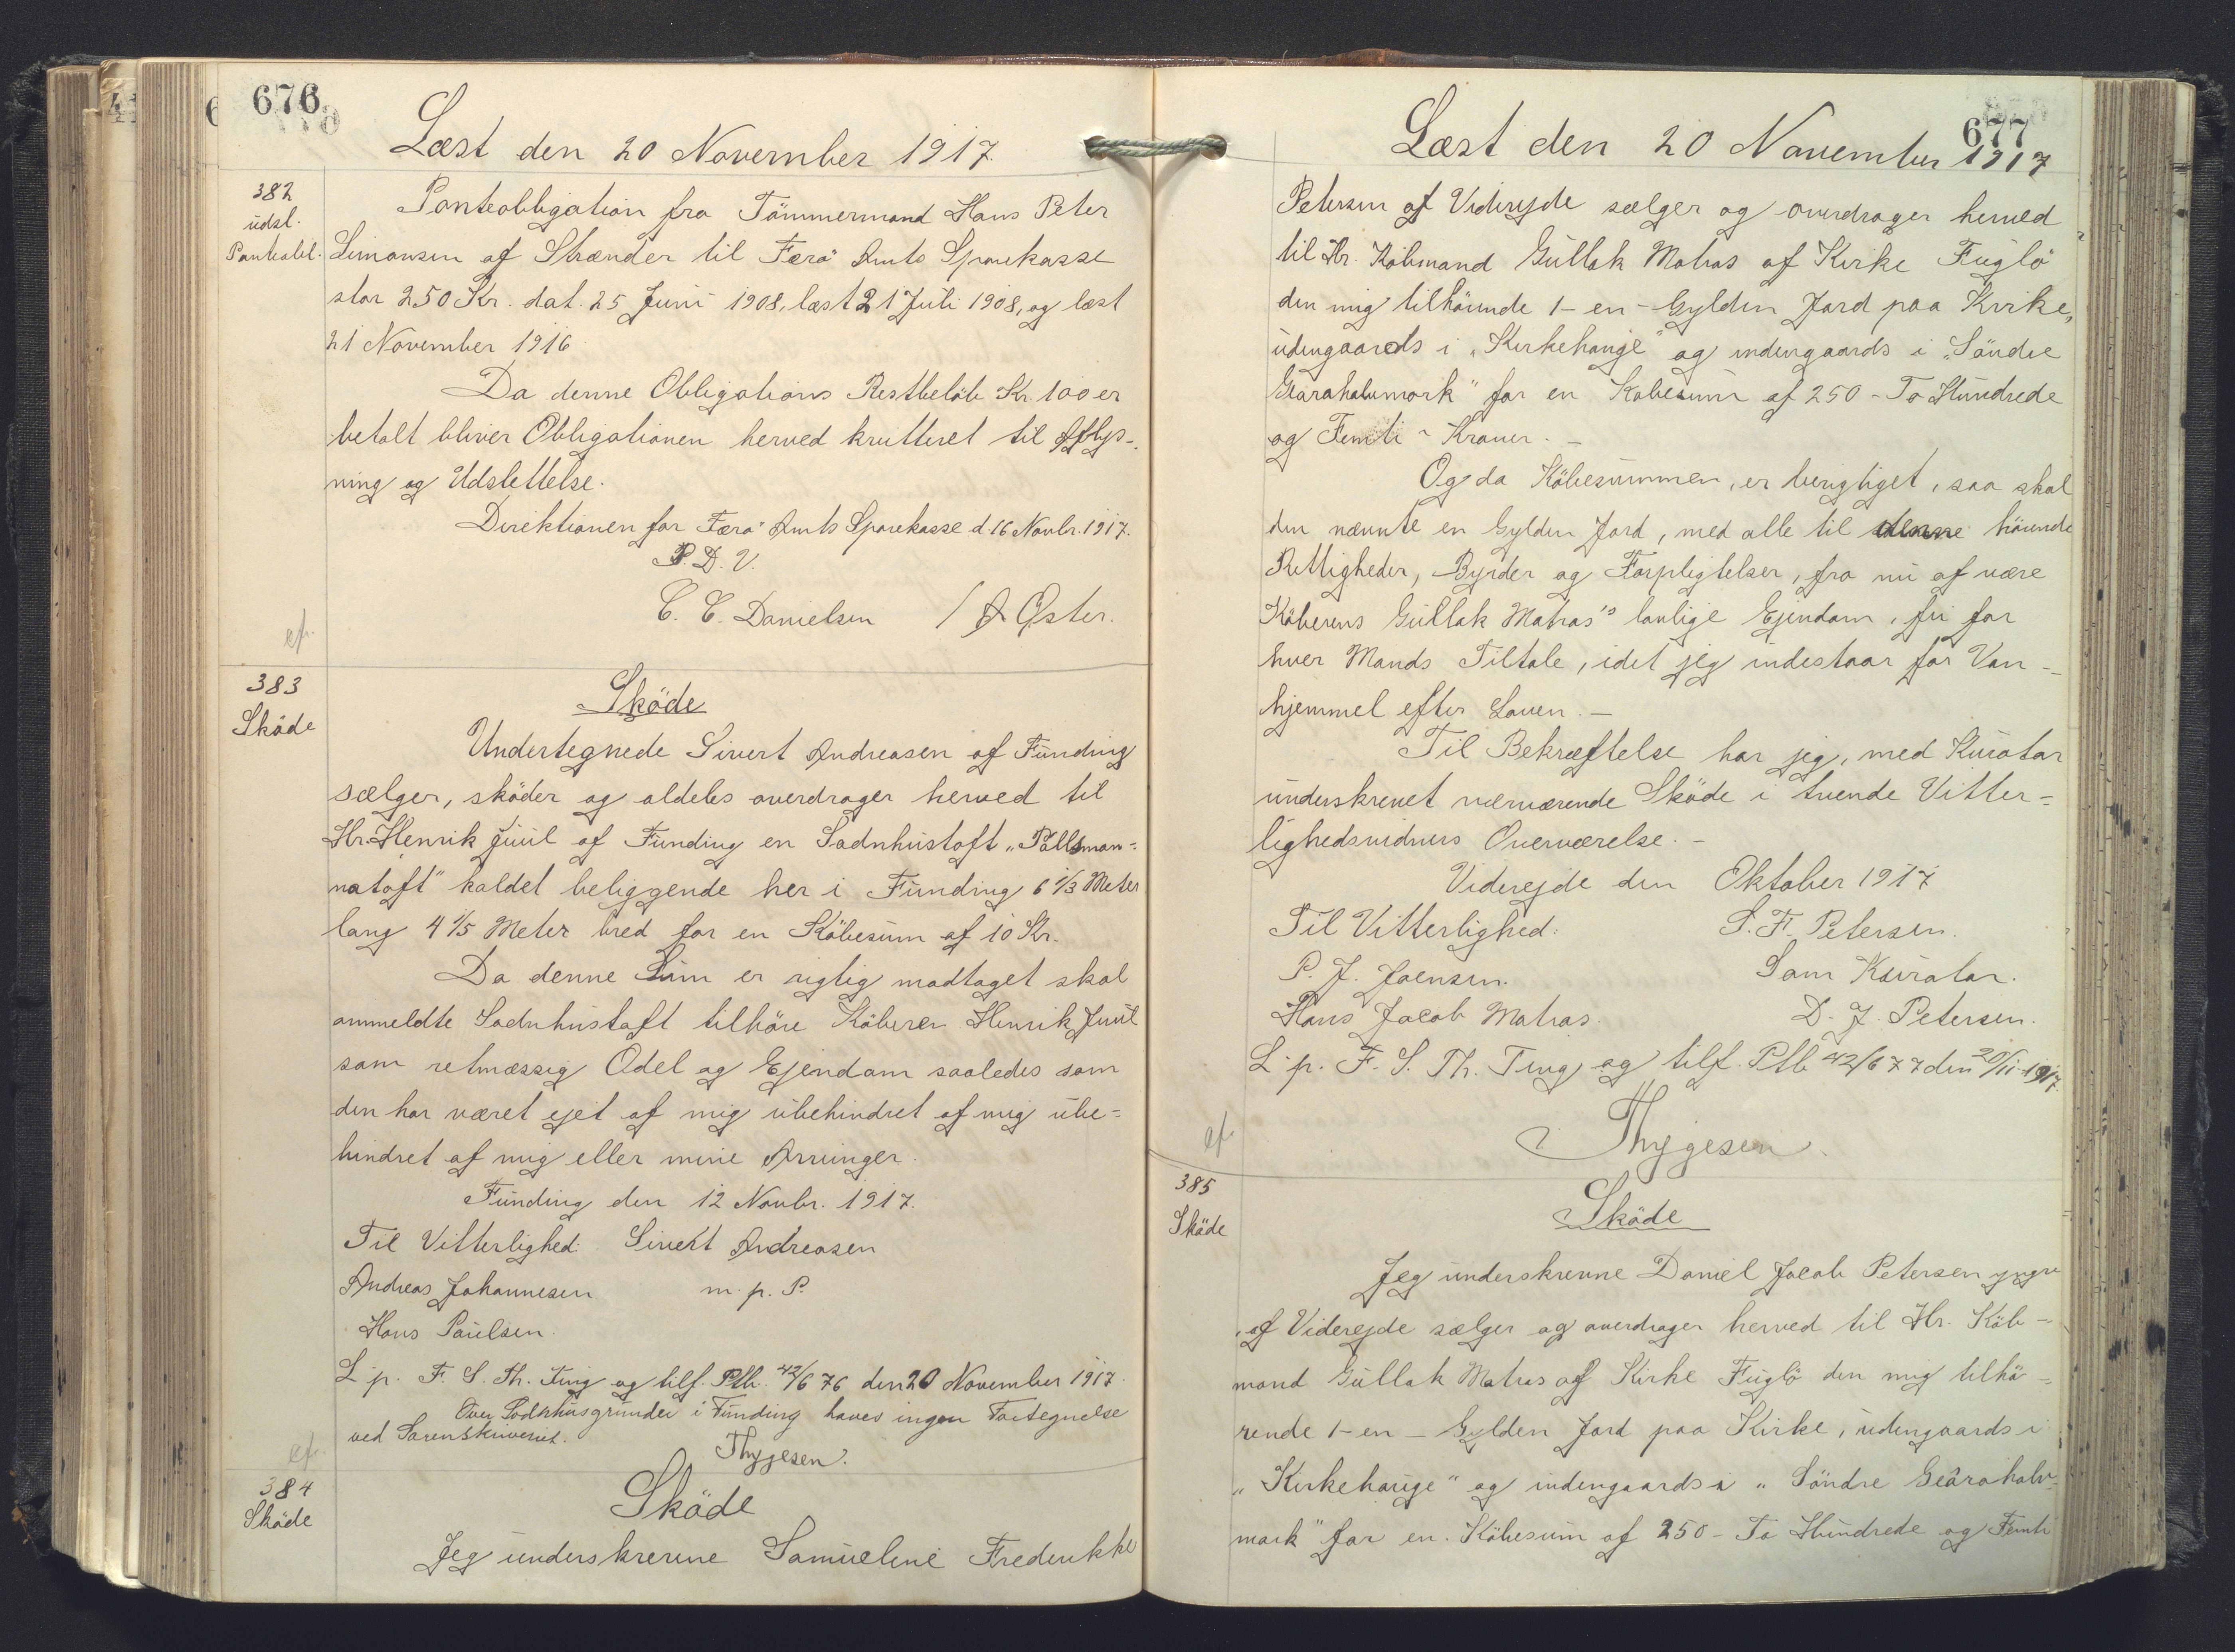 676.
Læst den 20 November 1917.
382
udsl.
Panteobl.
Panteobligation fra Tömmermand Hans Peter
Simonsen af Strænder til Færø Amts Sparekasse
stor 250 Kr. dat. 25 Juni 1908, læst 21 Juli 1908, og læst
21 November 1916
Da denne Obligations Restbeløb Kr. 100 er
betalt bliver Obligationen herved kvitteret til Aflys-
ning og Udslettelse.
Direktionen for Færø Amts Sparekasse d. 16 Novbr. 1917.
P. D. V.
C. C. Danielsen / A Øster.
cf.
383
Sköde
Sköde
Undertegnede Sivert Andreasen af Funding
sælger, sköder og aldeles overdrager herved til
Hr. Henrik Juul af Funding en Sodnhustoft „Pállsman-
natoft" kaldet beliggende her i Funding 6 1/3 Meter
lang 4 1/5 Meter bred for en Köbesum af 10 Kr.
Da denne Sum er rigtig modtaget skal
ommeldte Sodnhustoft tilhöre Köberen Henrik Juul
som retmæssig Odel og Ejendom saaledes som
den har været ejet af mig ubehindret af mig ube=
hindret af mig eller mine Arvinger.
Funding den 12 Novbr. 1917.
Til Vitterlighed: Sivert Andreasen
Andreas Johannesen m. p. P.
Hans Paulsen.
L. p. F. S. Th. Ting og tilf. Ptb. 42/676 den 20 November 1917.
Over Sodnhusgrunde i Funding haves ingen Fortegnelse
ved Sorenskriveriet.
Thygesen.
cf.
384
Sköde
Sköde
Jeg underskrevne Samueline Frederikke
677
Læst den 20 November 1917
Petersen af Viderejde sælger og overdrager herved
til Hr. Köbmand Gullak Matras af Kirke Fuglö
den mig tilhörende 1- en - Gylden Jord paa Kirke,
udengaards i „Kirkehauge" og indengaards i „Söndre
Gearahalvmark" for en Köbesum af 250 - To Hundrede
og Femti - Kroner. -
Og da Köbesummen, er berigtiget, saa skal
den nævnte en Gylden Jord, med alle til denne hörende
Rettigheder, Byrder og Forpligtelser, fra nu af være
Köberens Gullak Matras's lovlige Ejendom, fri for
hver Mands Tiltale, idet jeg indestaar for Van-
hjemmel efter Loven. -
Til Bekræftelse har jeg, med Kurator
underskrevet nærværende Sköde i tvende Vitter=
lighedsvidners Overværelse. -
Viderejde den Oktober 1917
Til Vitterlighed: S. F. Petersen.
P. J. Joensen. Som Kurator.
Hans Jacob Matras. D. J. Petersen.
L. p. F. S. Th. Ting og tilf. Ptb 42/677 den 20/11-1917.
Thygesen.
cf.
385
Sköde
Sköde
Jeg underskrevne Daniel Jacob Petersen yngre
af Viderejde sælger og overdrager herved til Hr. Köb-
mand Gullak Matras af Kirke Fuglö den mig tilhö=
rende 1- en - Gylden Jord paa Kirke, udengaards i
„Kirkehauge" og indengaards i „Söndre Gearahalv
mark" for en Köbesum af 250 - To Hundrede og Femti